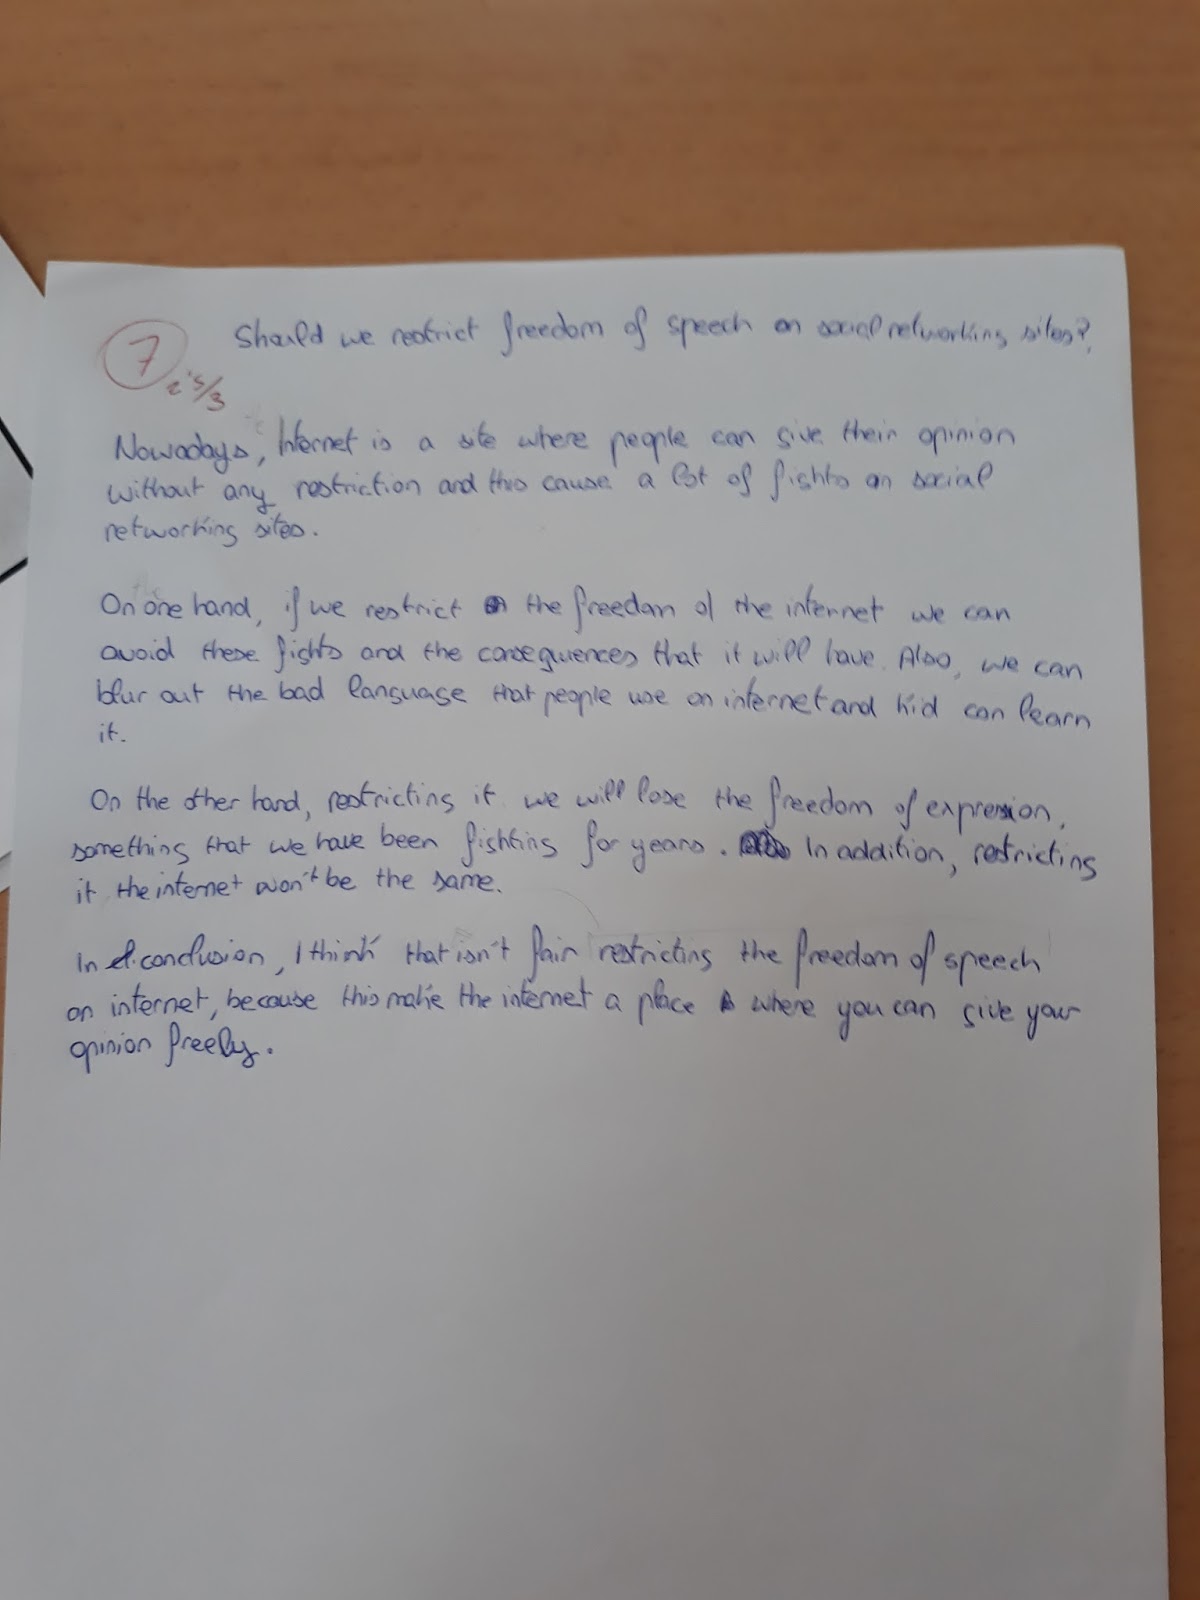 Should we restrict freedom of speech on social networking sites?
7
2'5/3
Nowadays, Internet is a site where people can give their opinion
without any restriction and this cause a lot of fights on social
networking sites.
On one hand, if we restrict the freedom of the internet we can
avoid these fights and the consequences that it will have. Also, we can
blur out the bad language that people use on internet and kid can learn
it.
On the other hand, restricting it we will lose the freedom of expression,
something that we have been fighting for years. In addition, restricting
it the internet won't be the same.
In conclusion, I think that isn't fair restricting the freedom of speech
on internet, because this make the internet a place where you can give your
opinion freely.